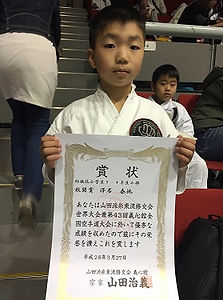 賞状
敢闘賞
あなたは山田派糸東流修交会
世界大会兼第43回義心館全
国空手道大会に於いて優秀な
成績を収めたので茲にその栄
誉を讃えこれを賞します
平成28年3月27日
山田派糸東流修交会 義心館
宗家 山田治義